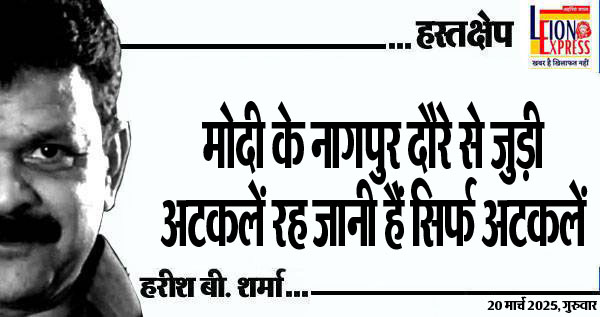 ... हस्तक्षेप
LION
EXPRESS
खबर है खिलाफत नहीं
मोदी के नागपुर दौरे से जुड़ी
अटकलें रह जानी हैं सिर्फ अटकलें
हरीश बी. शर्मा...
20 मार्च 2025, गुरुवार